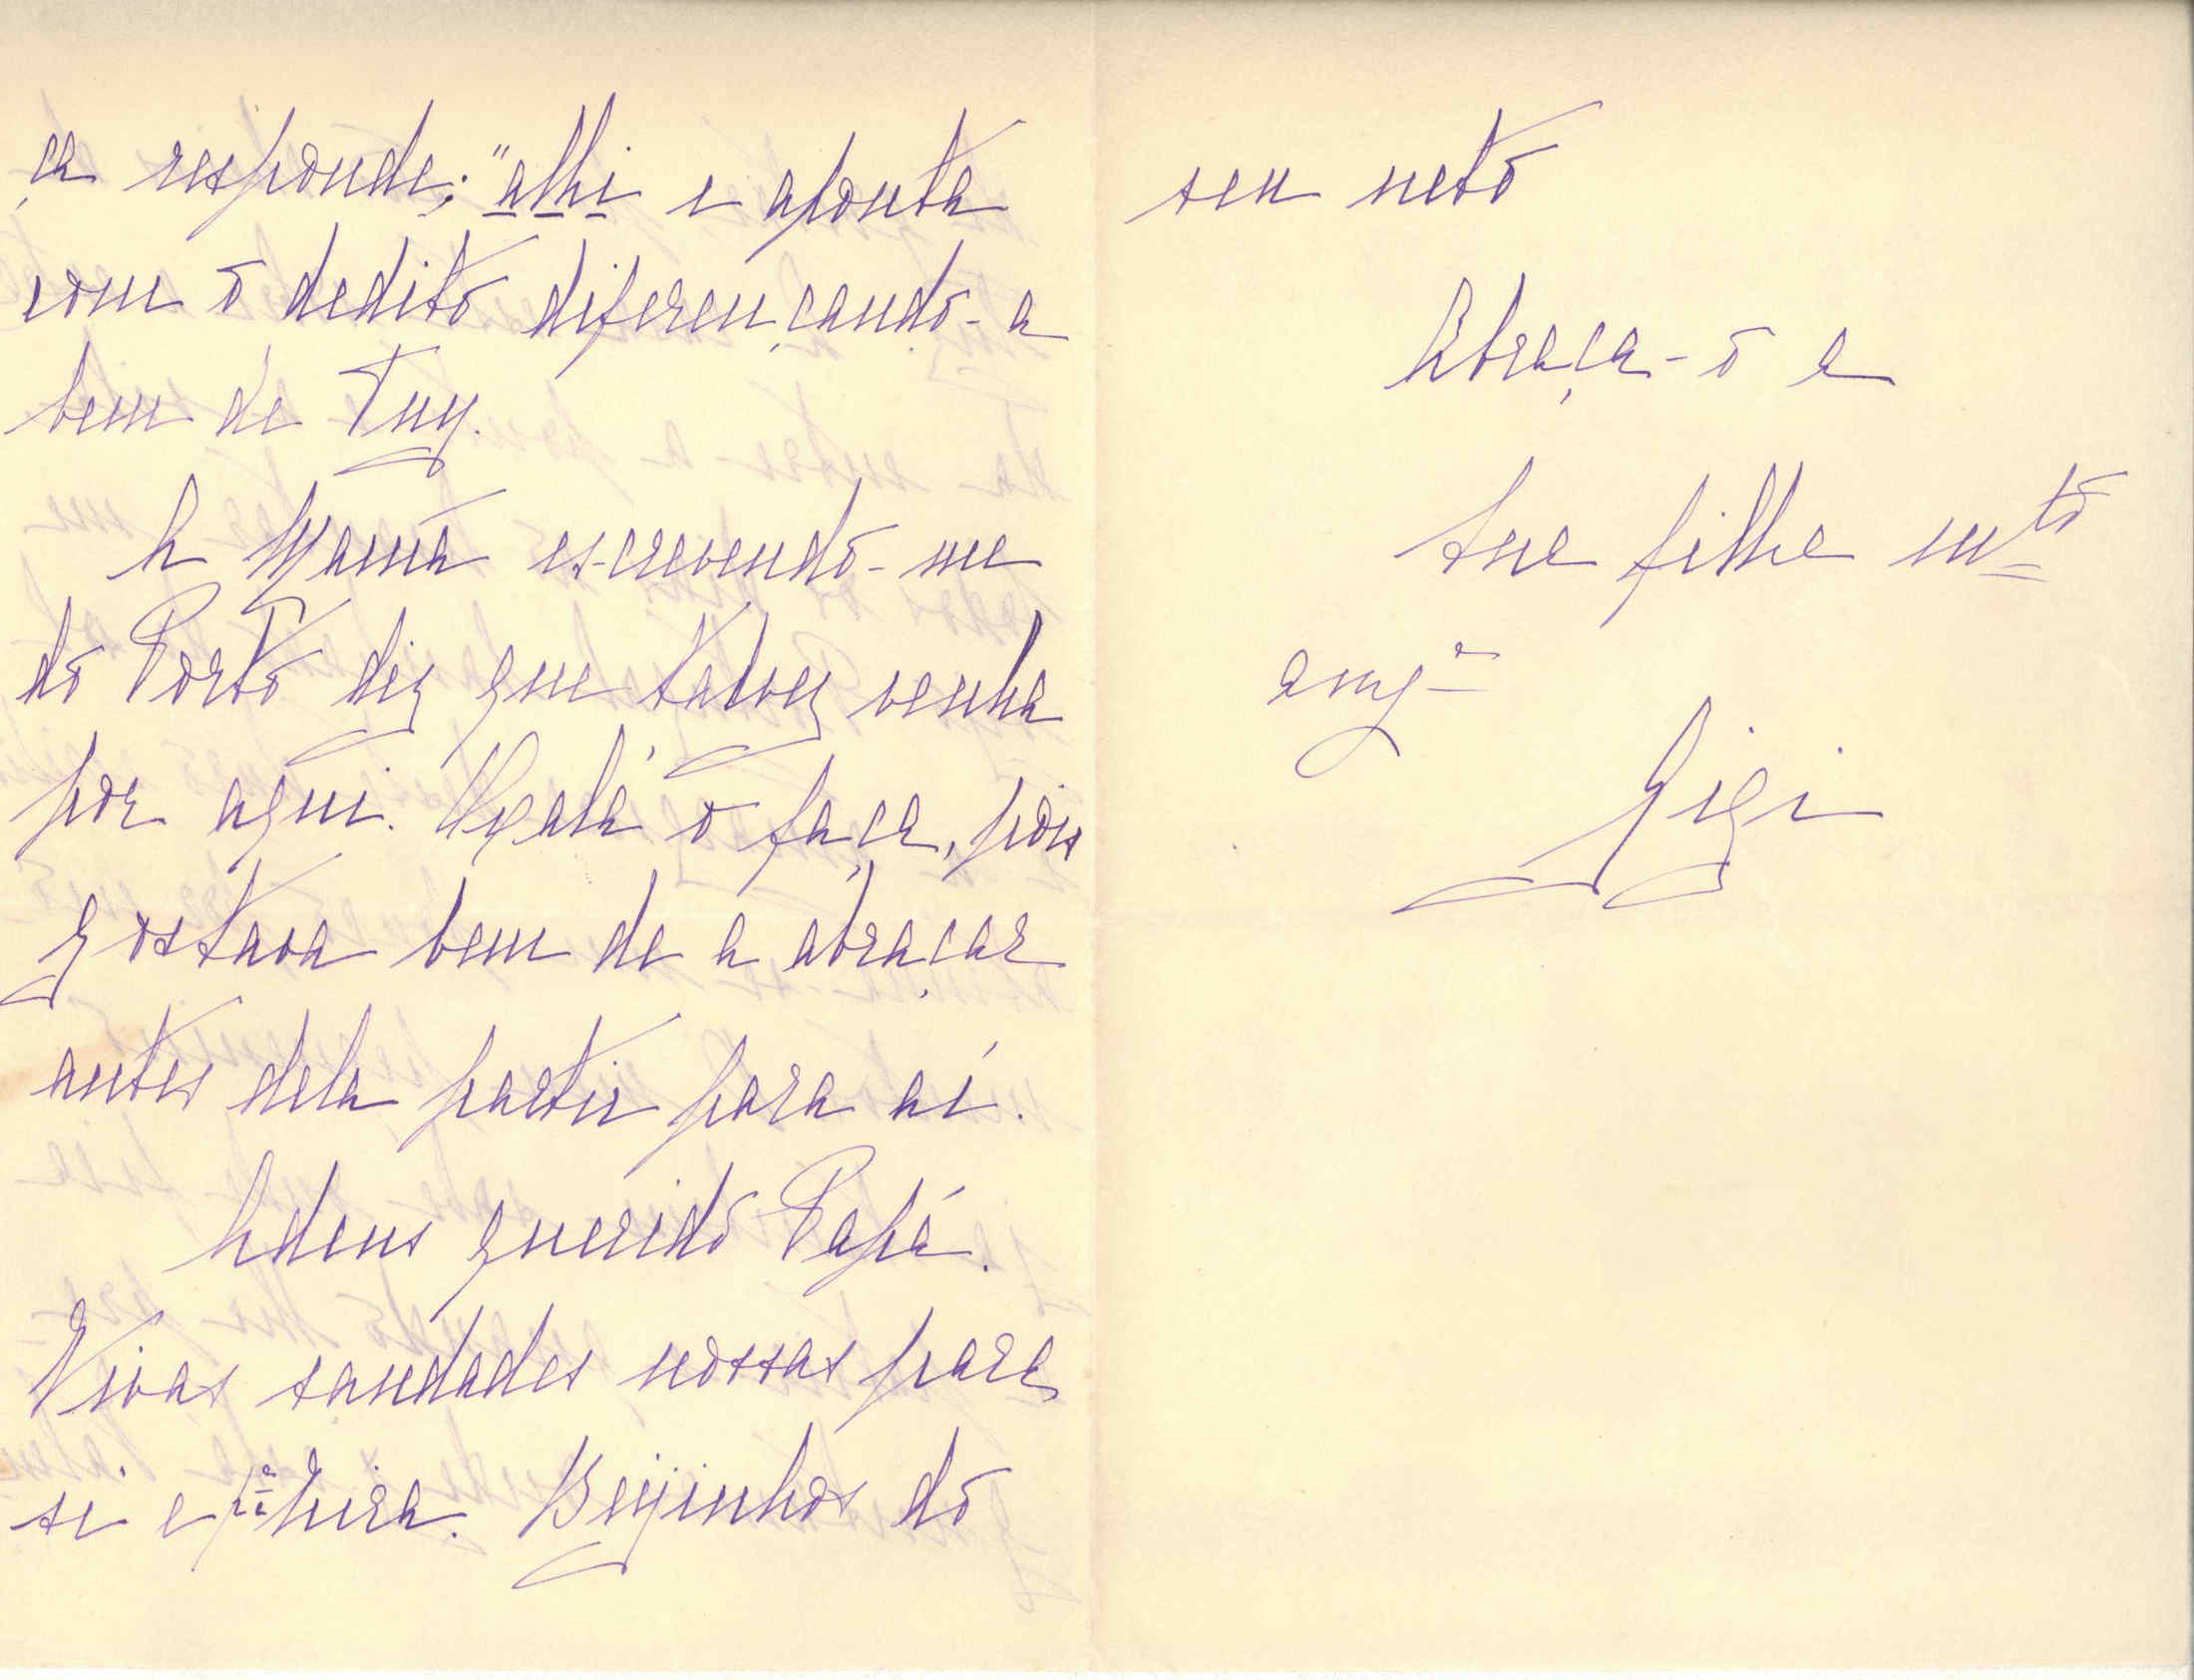 ça responde; "alhi e aponta
com o dedito diferençando-a
bem de Tuy.
A Mamã escrevendo-me
do Porto diz que talvez venha
por aqui. Oxalá o faça, pois
gostava bem de a abraçar
antes dela partir para aí.
Adeus querido Papá.
Vivas saudades nossas para
si e pª. Beijinhos do
seu neto
Abraça-o a
Sua filha mtº
amgª
Gigi